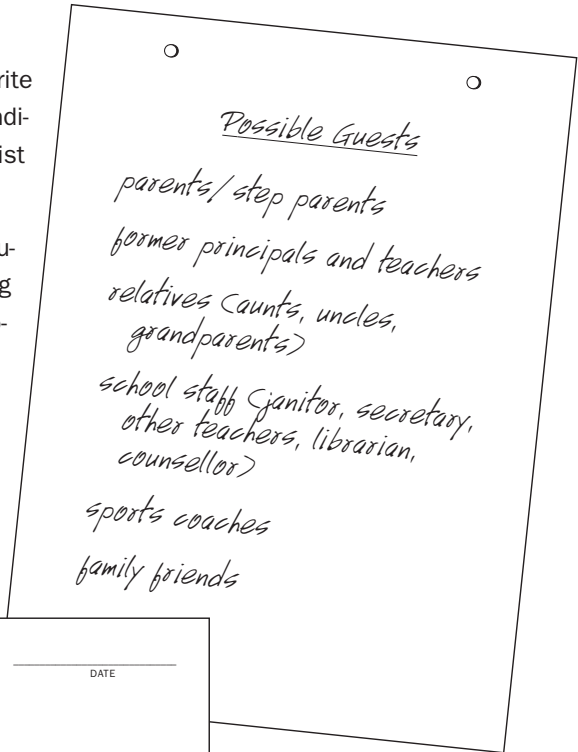 rite
ndi-
ist
u-
g
-
Possible Guests
parents/step parents
former principals and teachers
relatives (aunts, uncles,
grandparents)
school staff (janitor, secretary,
other teachers, librarian,
counsellor)
sports coaches
family friends
DATE